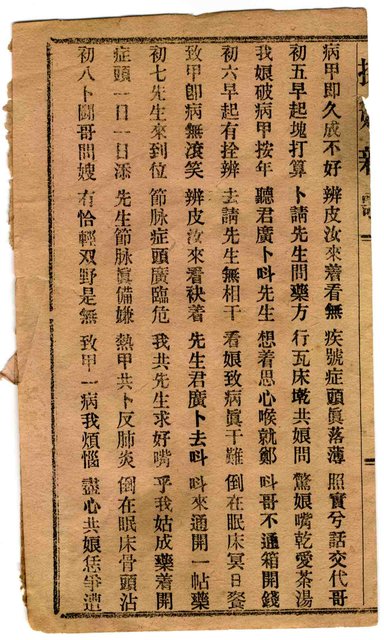 新
病甲即久成不好 辨皮汝來着看無 疾號症頭眞落薄 照實兮話交代哥
初五早起塊打算 卜請先生問藥方 行瓦床墘共娘問 驚娘嘴乾愛茶湯
我娘破病甲按年 聽君廣卜呌先生 想着思心喉就鄭 呌哥不通箱開錢
初六早起有拴辨 去請先生無相干 看娘致病眞干難 倒在眠床冥日餐
致甲卽病無滾笑 辨皮汝來看袂着 先生君廣卜去呌 呌來通開一帖藥
初七先生來到位 節脉症頭廣臨危 我共先生求好嘴 乎我姑成藥着開
症頭一日一日添 先生節脉眞備嫌 熱甲共卜反肺炎 倒在眠床骨頭沾
初八卜鬪哥問嫂 有恰輕双野是無 致甲一病我煩惱 盡心共娘